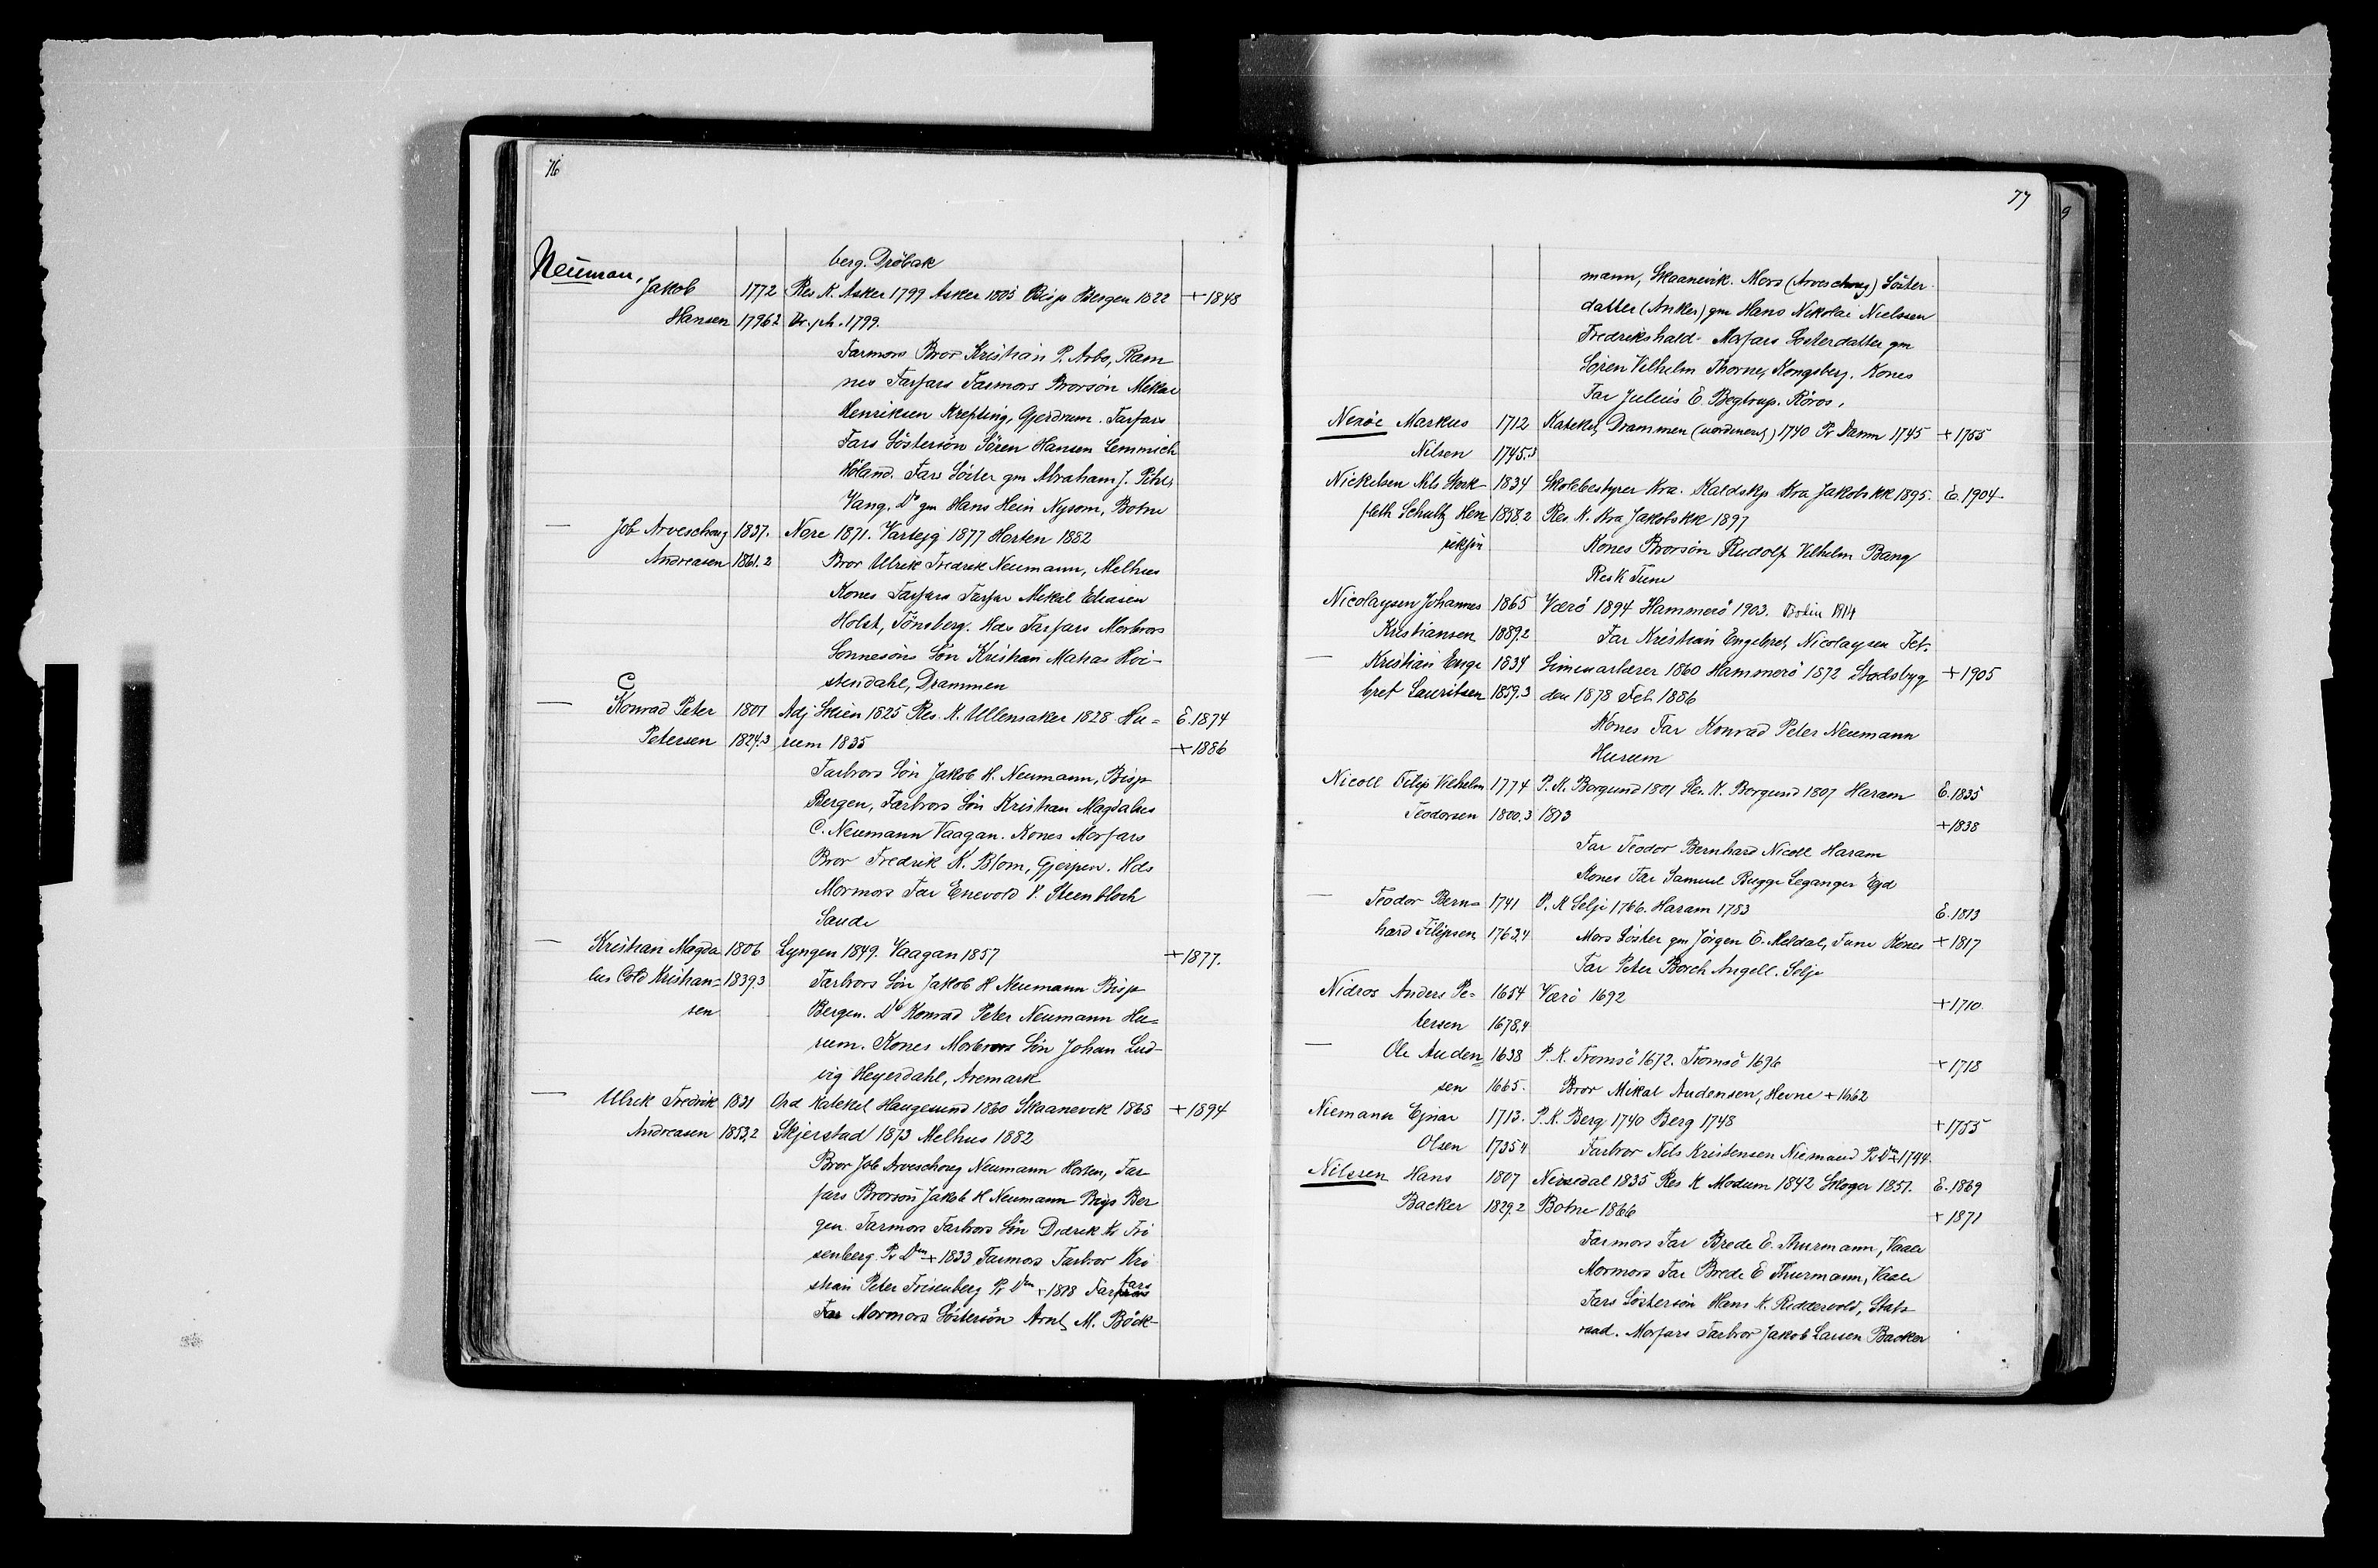 76
berg. Dröbak
Neumann, Jakob 1772 Res K. Asker 1799 Asker 1805 Bisp Bergen 1822 + 1848
Hansen 1796.2 Dr. ph. 1799.
Farmors Bror Kristian P. Arbo, Ram
nes Farfars Farmors Brorsön Mikal
Henriksen Krefting, Gjerdrum. Farfars
Fars Söstersön Sören Hansen Lemmich
Höland. Fars Söster gm Abraham J. Pihl,
Vang. Do gm Hans Hein Nysom, Botne
— Job Arveschoug 1837. Nore 1871. Varteig 1877 Horten 1882
Andreasen 1861.2 Bror Ulrik Fredrik Neumann, Melhus
Kones Farfars Farfar Mikal Eliasen
Holst, Tönsberg. Hds Farfars Morbrors
Sonnesöns Sön Kristian Matias Hoi-
stendahl, Drammen
C
— Konrad Peter 1801 Adj Skien 1825 Res. K. Ullensaker 1828 Hu= E. 1874
Petersen 1824.3 rum 1835 + 1886
Farbrors Sön Jakob H. Neumann, Bisp
Bergen, Farbrors Sön Kristian Magdalus
C. Neumann Vaagan. Kones Morfars
Bror Fredrik K. Blom, Gjerpen. Hds
Mormors Far Enevold V. Steenbloch
Saude
— Kristian Magda 1806 Lyngen 1849. Vaagan 1857 + 1877.
lus Cold Kristian= 1839.3 Farbrors Sön Jakob H Neumann Bisp
sen Bergen. Do Konrad Peter Neumann Hu=
rum. Kones Morbrors Sön Johan Lud-
vig Heyerdahl, Aremark
— Ulrik Fredrik 1831 Ord Kateket Haugesund 1860 Skaanevik 1865 + 1894
Andreasen 1853.2 Skjerstad 1873 Melhus 1882
Bror Job Arveschoug Neumann Horten, Far
fars Brorsön Jakob H Neumann Bisp Ber
gen. Farmors Farbrors Sön Didrik Kr Fri
senberg Pr Dm + 1833 Farmors Farbror Kri
stian Peter Frisenberg Pr Dm + 1818 Farfars
Far Mormors Söstersön Arnt M. Böck-
77
9
mann, Skaanevik. Mors (Arveschoug) Söster
datter (Anker) gm Hans Nikolai Nielssen
Fredrikshald. Morfars Sösterdatter gm
Sören Vilhelm Thorne, Kongsberg. Kones
Far Julius E. Begtrup. Röros.
Nexöe Markus 1712 Kateket, Drammen 1740 Pr Danm 1745 + 1755
Nilsen 1745.3
Nickelsen Nils Stock- 1834 Skolebestyrer Kra. Kaldskp Kra Jakobs kk 1895. E. 1904.
fleth Schultz Hen 1858.2 Res. K. Kra Jakobs kk 1897
riksön Kones Brorsön Rudolf Vilhelm Bang
Res K Tune
Nicolaysen Johannes 1865 Værö 1894 Hammerö 1903. Bodin 1914
Kristiansen 1889.2 Far Kristian Engebret Nicolaysen Fet.
— Kristian Enge 1834 Seminarlærer 1860 Hammerö 1872 Stadsbyg + 1905
bret Lauritsen 1859.3 den 1878 Fet 1886
Kones Far Konrad Peter Neumann
Hurum
Nicoll Filip Vilhelm 1774 P. K. Borgund 1801 Res. K. Borgund 1807 Haram E. 1835
Teodorsen 1800.3 1813 + 1838
Far Teodor Bernhard Nicoll Haram
Kones Far Samuel Bugge Leganger Egd
— Teodor Bern= 1741 P. K Selje 1766. Haram 1783 E. 1813
hard Filipsen 1763.4 Mors Söster gm Jörgen E. Meldal, Tune Kones + 1817
Far Peter Borch Angell. Selje
Nidros Anders Pe= 1654 Værö 1692 + 1710.
tersen 1678.4
— Ole Auden= 1638 P. K. Tromsö 1672. Tromsö 1696 + 1718
sen 1665. Bror Mikal Audensen, Hevne + 1662
Niemann Ejnar 1713. P. K. Berg 1740 Berg 1748 + 1755
Olsen 1735.4 Farbror Nils Kristensen Niemand Pr Dm + 1794.
Nilssen Hans 1807 Nissedal 1835 Res K Modum 1842 Sloger 1857. E. 1869
Backer 1829.2 Botne 1866 + 1871
Farmors Far Brede E. Thurmann, Vaale
Mormors Far Brede E Thurmann, Vaale
Fars Söstersön Hans K. Riddervold, Stats
raad. Morfars Farbror Jakob Larsen Backer